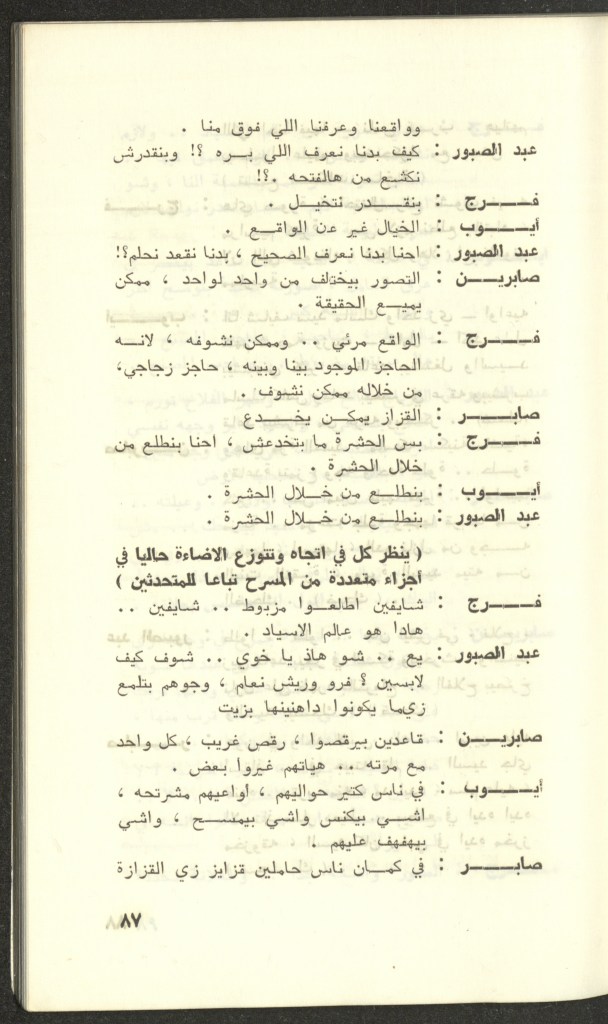 وواقعنا وعرفنا اللي فوق منا .
عبد الصبور : كيف بدنا نعرف اللي بــره ؟! وبنقدرش
نكشع من هالفتحه .؟!
فـــــرج : بنقـــدر نتخيــل .
أيـــــوب : الخيال غير عن الواقـــع .
عبد الصبور : احنا بدنا نعرف الصحيح ، بدنا نقعد نحلم؟!
صابريـــن : التصور بيختلف من واحد لواحد ، ممكن
يميــع الحقيقة .
فـــــرج : الواقع مرئي .. وممكن نشوفه ، لانــه
الحاجز الموجود بينا وبينه ، حاجز زجاجي،
من خلاله ممكن نشوف .
صابــــر : القزاز يمكــن يخــدع
فـــــرج : بس الحشرة ما بتخدعش ، احنا بنطلع من
خلال الحشرة .
أيـــــوب : بنطلــع من خــلال الحشرة .
عبد الصبور : بنطلــع من خــلال الحشرة .
( ينظر كل في اتجاه وتتوزع الاضاءة حاليا في
أجزاء متعددة من المسرح تباعا للمتحدثين )
فـــــرج : شايفين اطلعــوا مزبوط .. شايفين ..
هادا هو عالم الاسياد .
عبد الصبور : يع .. شو هاذ يا خوي .. شوف كيف
لابسين ؟ فرو وريش نعام ، وجوهم بتلمع
زيما يكونوا داهنينها بزيت
صابريـــن : قاعدين بيرقصوا ، رقص غريب ، كل واحد
مع مرته .. هياتهم غيروا بعض .
أيـــــوب : في ناس كتير حواليهم ، اواعيهم مشرتحه ،
اشــي بيكنس واشي بيمســح ، واشي
بيهفهف عليهم .
صابــــر : في كمــان ناس حاملين قزايز زي القزازة
٨٧